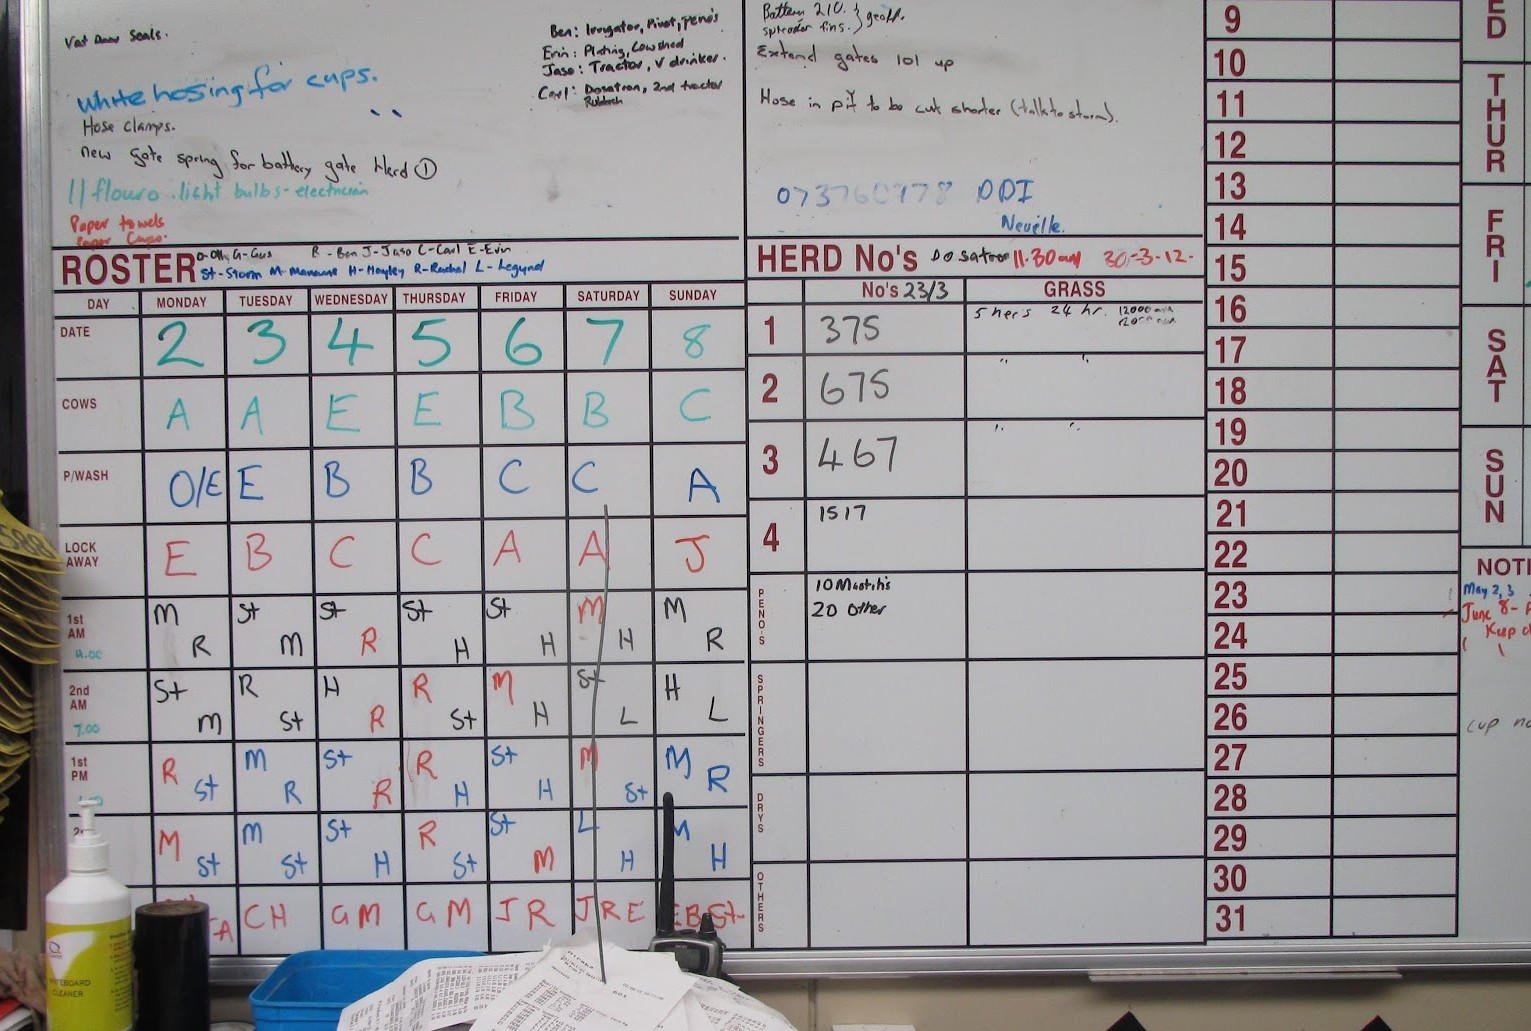 Vat Door Seals.
Ben: Irrigator, Pivot, peno's
Erin: Plating, Cowshed
Jaso: Tractor, V drinker.
Carl: Dosatron, 2nd tractor
Rubbish
white hosing for cups.
Hose clamps.
new gate spring for battery gate Herd ①
11 flouro light bulbs - electrician
Paper towels
Paper Cups.
geoff.
spreader fins.
Extend gates 101 up
Hose in pit to be cut shorter (talk to storm).
073760778 DDI
Neville.
ROSTER
G-Gus B-Ben J-Jaso C-Carl E-Erin
St-Storm M-Manawa H-Hayley R-Rachel L-Legund
DAY MONDAY TUESDAY WEDNESDAY THURSDAY FRIDAY SATURDAY SUNDAY
DATE 2 3 4 5 6 7 8
COWS A A E E B B C
P/WASH O/E E B B C C A
LOCK AWAY E B C C A A J
1st AM M R St M St R St H St H M H M R
2nd AM 7.00 St M R St H R R St M H St L H L
1st PM R St M R St R R H St H M St M R
M St M St St H R St St M L H M H
A CH GM GM JR JRE EBSt
HERD No's Dosatron 11.30am 30-3-12-
No's 23/3 GRASS
1 375 5 hers 24 hr.
2 675 " "
3 467 " "
4 1517
PENO'S 10 Mastitis
20 Other
SPRINGERS
DRYS
OTHERS
9
10
11
12
13
14
15
16
17
18
19
20
21
22
23
24
25
26
27
28
29
30
31
ED
THUR
FRI
SAT
SUN
NOTI
May 2,3
June 8-
Keep
cup no
588
WHITEBOARD
CLEANER